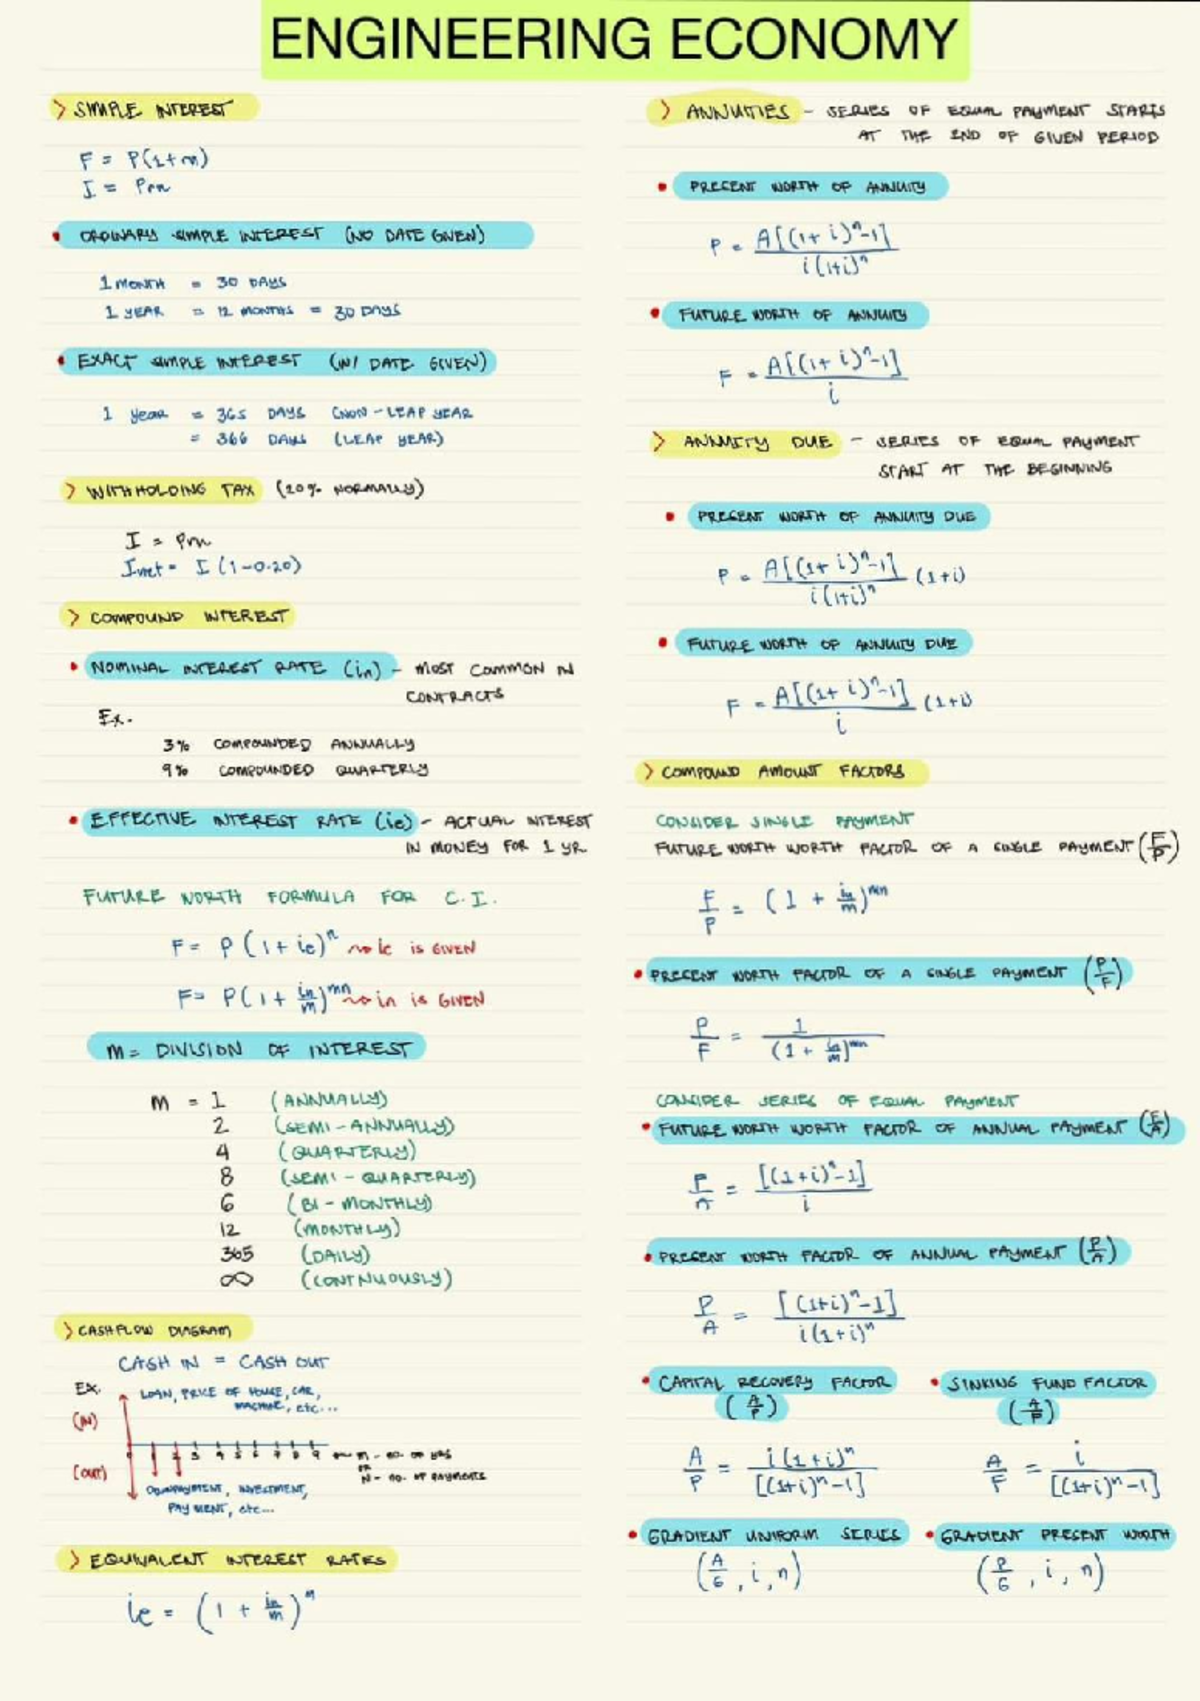 ENGINEERING ECONOMY
> SIMPLE INTEREST
F = P(1+rn)
I = Prn
• ORDINARY SIMPLE INTEREST (NO DATE GIVEN)
1 MONTH = 30 DAYS
1 YEAR = 12 MONTHS = 30 DAYS
• EXACT SIMPLE INTEREST (W/ DATE GIVEN)
1 year = 365 DAYS (NON-LEAP YEAR
= 366 DAYS (LEAP YEAR)
> WITHHOLDING TAX (20% NORMALLY)
I = Prn
Inet = I (1-0.20)
> COMPOUND INTEREST
• NOMINAL INTEREST RATE (in) - MOST COMMON IN
CONTRACTS
Ex.
3% COMPOUNDED ANNUALLY
9% COMPOUNDED QUARTERLY
• EFFECTIVE INTEREST RATE (ie) - ACTUAL INTEREST
IN MONEY FOR 1 YR
FUTURE WORTH FORMULA FOR C.I.
F = P(1+ie)^n → ie IS GIVEN
F = P(1+in/m)^mn → in is GIVEN
m = DIVISION OF INTEREST
m = 1 (ANNUALLY)
2 (SEMI-ANNUALLY)
4 (QUARTERLY)
8 (SEMI-QUARTERLY)
6 (BI-MONTHLY)
12 (MONTHLY)
365 (DAILY)
∞ (CONTINUOUSLY)
> CASHFLOW DIAGRAM
CASH IN = CASH OUT
EX. LOAN, PRICE OF HOUSE, CAR,
MACHINE, etc...
(IN)
3 4 5 6 7 8 9 n - no. OF YRS
OR
(OUT) N - no. OF PAYMENTS
DOWNPAYMENT, INVESTMENT,
PAYMENT, etc...
> EQUIVALENT INTEREST RATES
ie = (1 + in/m)^m
> ANNUITIES - SERIES OF EQUAL PAYMENT STARTS
AT THE END OF GIVEN PERIOD
• PRESENT WORTH OF ANNUITY
P = A[(1+i)^n-1] / i(1+i)^n
• FUTURE WORTH OF ANNUITY
F = A[(1+i)^n-1] / i
> ANNUITY DUE - SERIES OF EQUAL PAYMENT
START AT THE BEGINNING
• PRESENT WORTH OF ANNUITY DUE
P = A[(1+i)^n-1] / i(1+i)^n (1+i)
• FUTURE WORTH OF ANNUITY DUE
F = A[(1+i)^n-1] / i (1+i)
> COMPOUND AMOUNT FACTORS
CONSIDER SINGLE PAYMENT
FUTURE WORTH WORTH FACTOR OF A SINGLE PAYMENT (F/P)
F/P = (1 + in/m)^mn
• PRESENT WORTH FACTOR OF A SINGLE PAYMENT (P/F)
P/F = 1 / (1 + in/m)^mn
CONSIDER SERIES OF EQUAL PAYMENT
• FUTURE WORTH WORTH FACTOR OF ANNUAL PAYMENT (F/A)
F/A = [(1+i)^n-1] / i
• PRESENT WORTH FACTOR OF ANNUAL PAYMENT (P/A)
P/A = [(1+i)^n-1] / i(1+i)^n
• CAPITAL RECOVERY FACTOR • SINKING FUND FACTOR
(A/P) (A/F)
A/P = i(1+i)^n / [(1+i)^n-1] A/F = i / [(1+i)^n-1]
• GRADIENT UNIFORM SERIES • GRADIENT PRESENT WORTH
(A/G, i, n) (P/G, i, n)